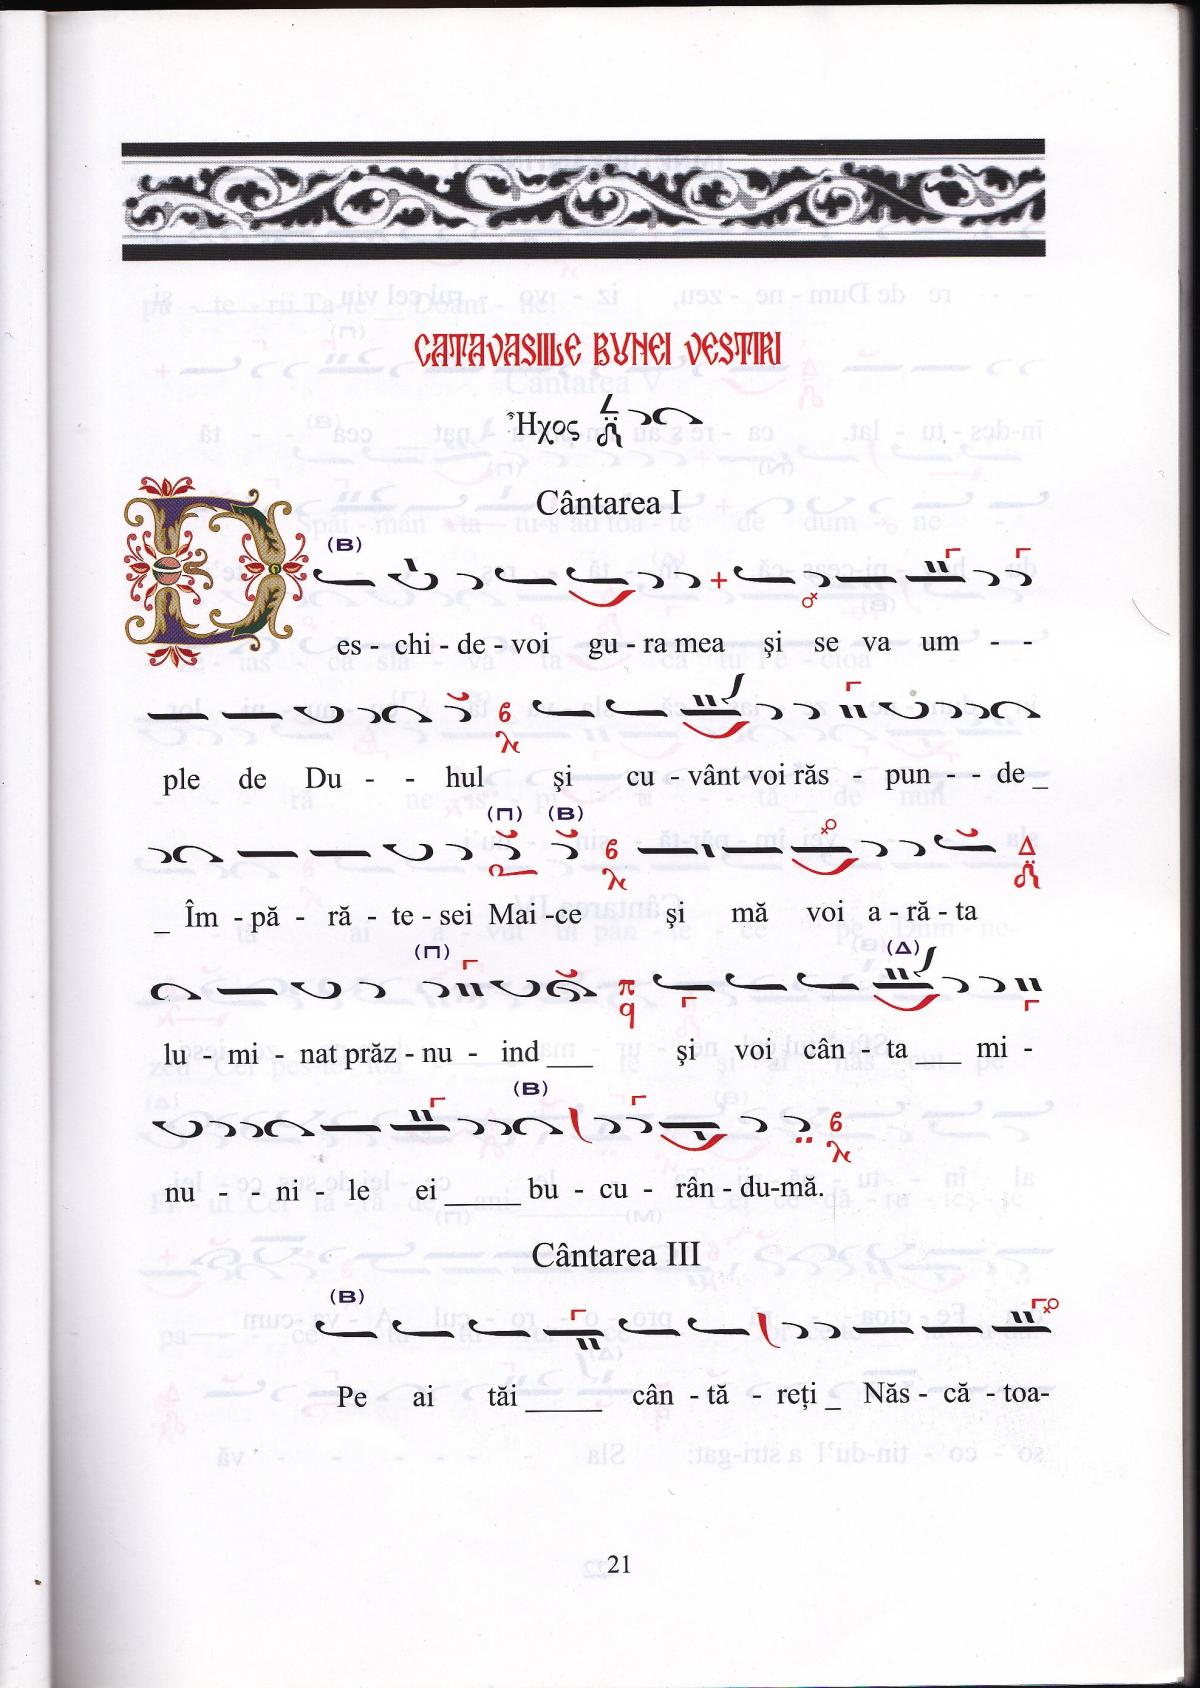 CATAVASIILE BUNEI VESTIRI
Ἦχος
Cântarea I
(B)
Des - chi - de - voi gu - ra mea şi se va um - -
ple de Du - - hul şi cu - vânt voi răs - pun - - de _
(Π) (B)
_ Îm - pă - ră - te - sei Mai - ce şi mă voi a - ră - ta
(Π) (Δ)
lu - mi - nat prăz - nu - ind ___ şi voi cân - ta ___ mi -
(B)
nu - - ni - le ei _____ bu - cu - rân - du-mă.
Cântarea III
(B)
Pe ai tăi _____ cân - tă - reți _ Năs - că - toa-
21